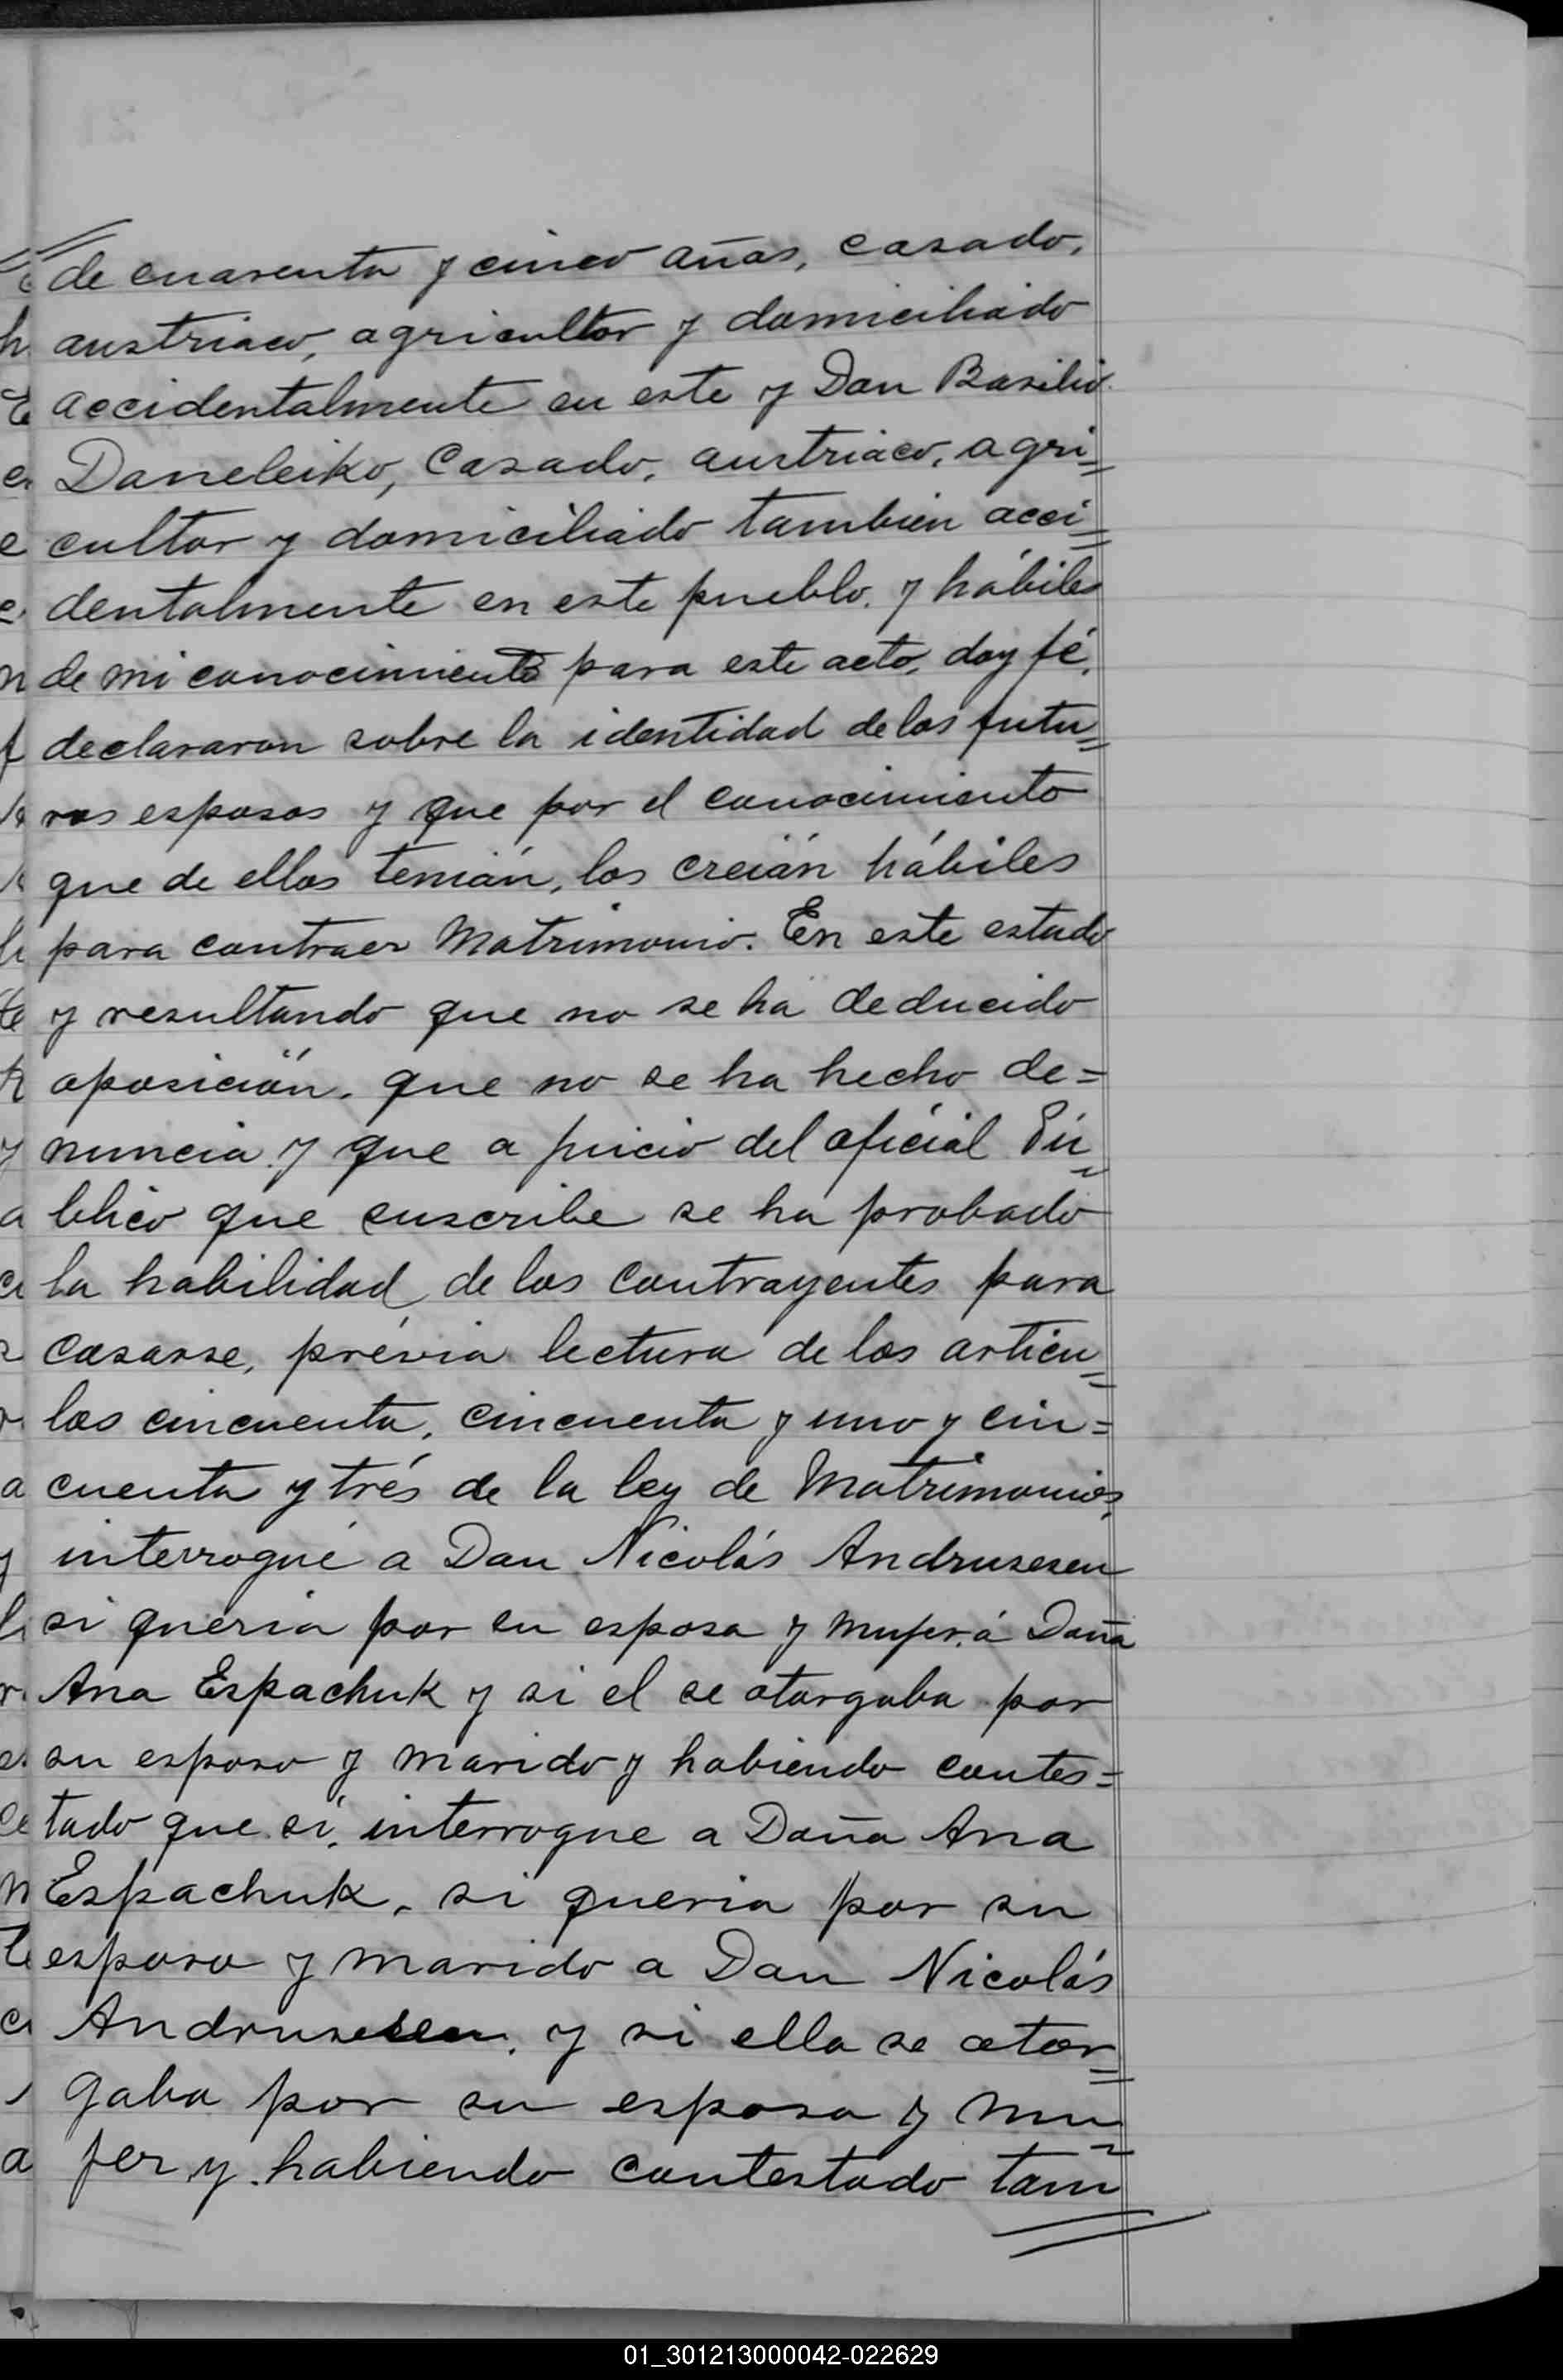 de cuarenta y cinco años, casado,
austriaco, agricultor y domiciliado
accidentalmente en este y Don Basilio
Daneleiko, Casado, austriaco, agri=
cultor y domiciliado tambien acci=
dentalmente en este pueblo, y hábiles
de mi conocimiento para este acto, doy fé,
declararon sobre la identidad de los futu=
ros esposos y que por el conocimiento
que de ellos tenián, los creián hábiles
para contraer Matrimonio. En este estado
y resultando que no se ha deducido
oposición, que no se ha hecho de=
nuncia y que a juicio del oficial Pú=
blico que suscribe se ha probado
la habilidad de los contrayentes para
casarse, prévia lectura de los artícu=
los cincuenta, cincuenta y uno y cin=
cuenta y trés de la ley de Matrimonios,
interrogué a Don Nicolás Andrusesen
si queria por su esposa y mujer á Doña
Ana Espachuk y si el se otorgaba por
su esposo y marido y habiendo contes=
tado que sí, interrogue a Doña Ana
Espachuk, si queria por su
esposo y marido a Don Nicolás
Andrusesen, y si ella se otor=
gaba por su esposa y mu=
jer y habiendo contestado tam
01_301213000042-022629